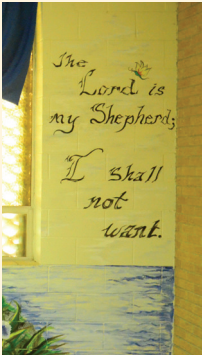 The
Lord is
my Shepherd;
I shall
not
want.